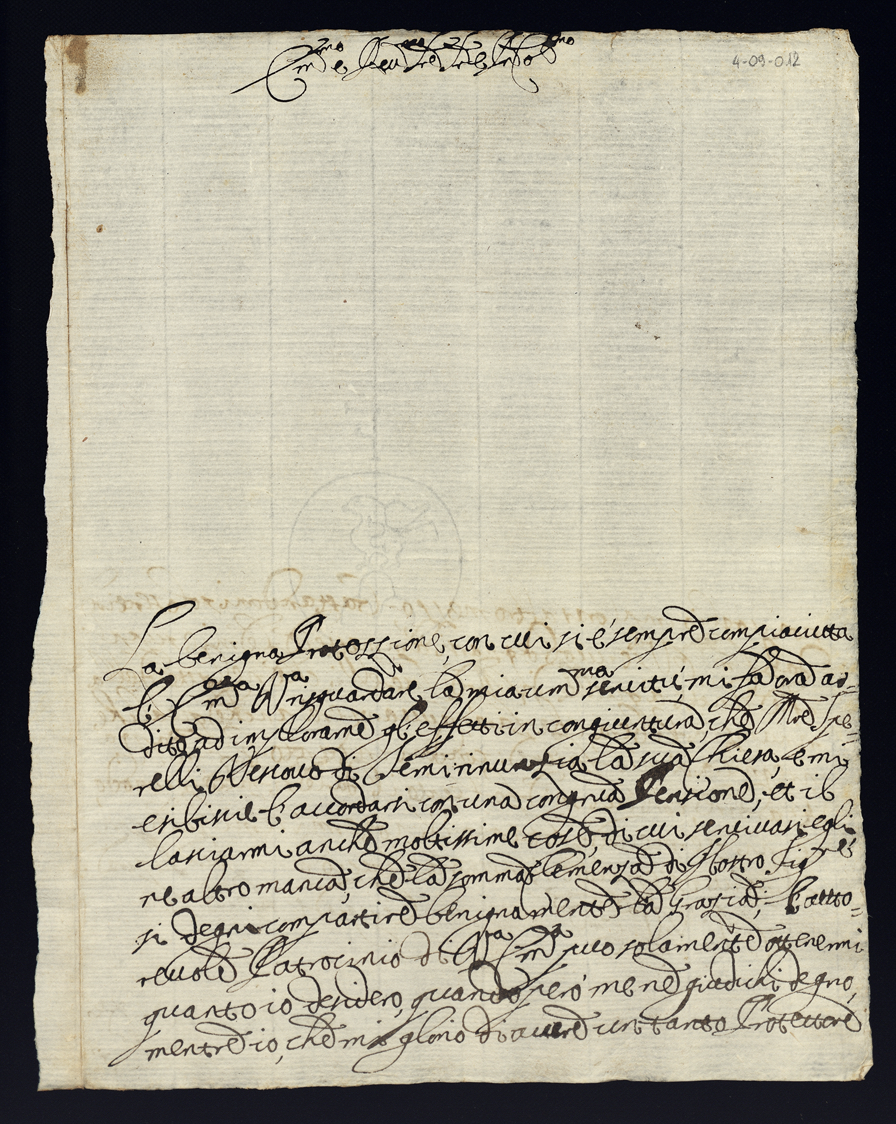 Em.mo e Reu.mo Sig.re Sig.re e Pron Col.mo
4-09-012
La benigna Protezzione, con cui si è sempre compiaciuta
l'Em.za V.ra risguardare la mia um.ma seruitù, mi fà ora ar=
dito ad implorarne gl'effetti in congiuntura, che Mre
relli Vescouo di rinunzia la sua Chiesa, e mi
esibisce l'accordarsi con una congrua Pensione, et il
lasciarmi anche moltissime cose, di cui seruiuasi egli
ne altro manca, che la somma Clemenza di Nostro Sig.re
si degni compartire benignamente la Grazia; L'auto=
reuole Patrocinio di V.ra Em.za puo solamente ottenermi
quanto io desidero, quando però me ne giudichi degno,
mentre io, che mi glorio di auere un tanto Protettore